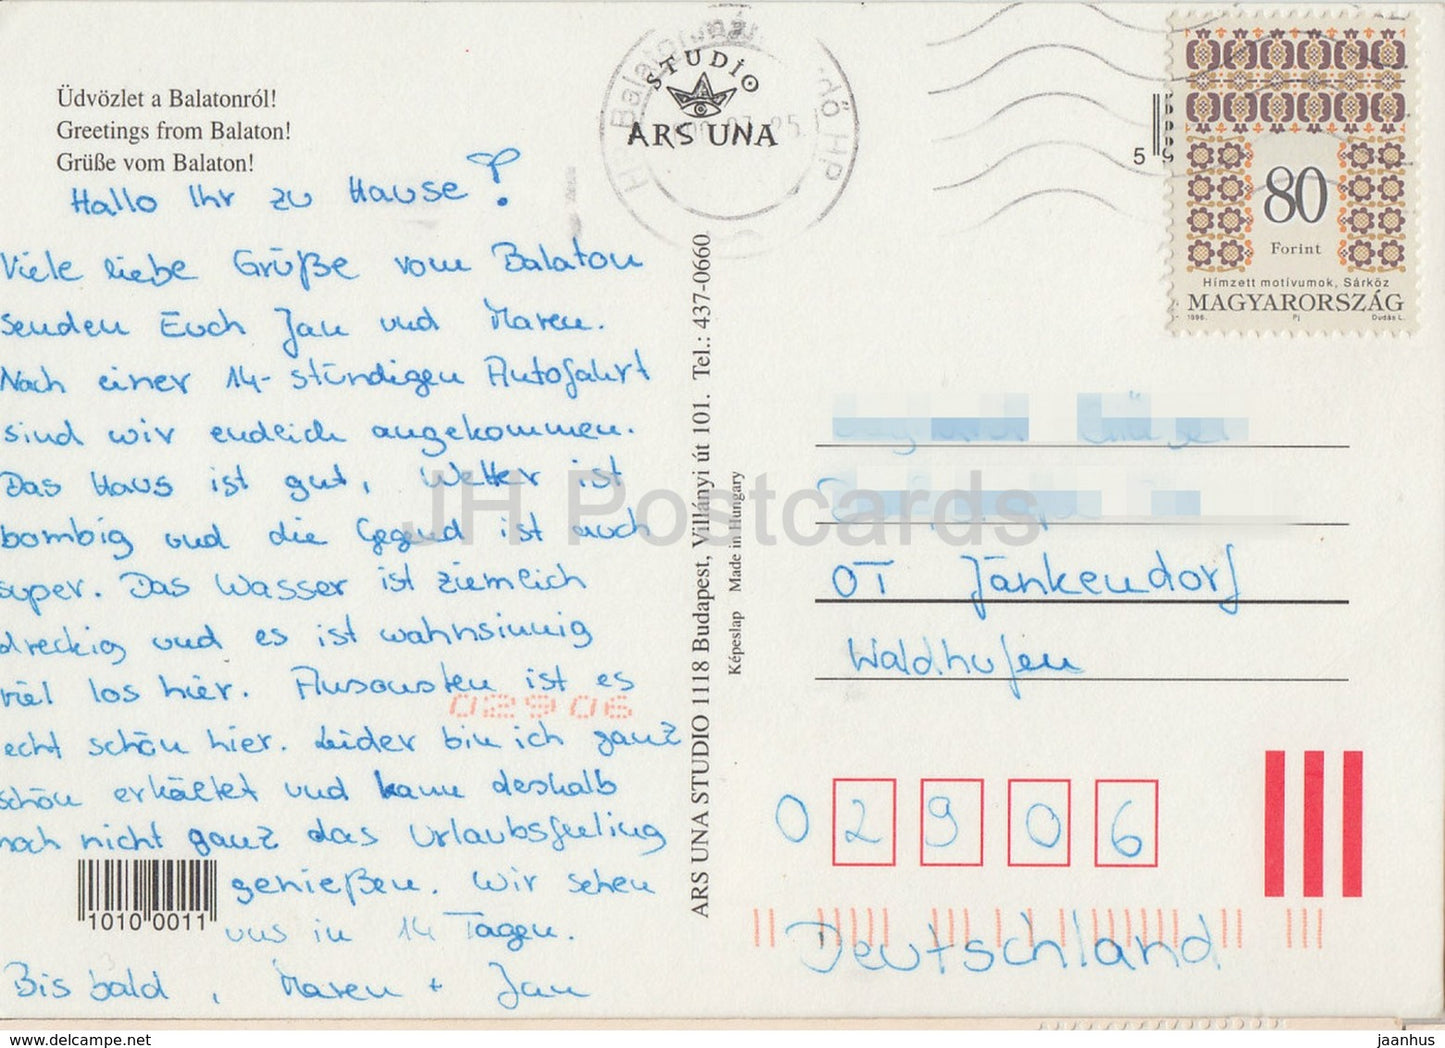 Üdvözlet a Balatonról!
Greetings from Balaton!
Grüße vom Balaton!
Hallo Ihr zu Hause!
Viele liebe Grüße vom Balaton
senden Euch Jan und Maren.
Nach einer 14-stündigen Autofahrt
sind wir endlich angekommen.
Das Haus ist gut, Wetter ist
bombig und die Gegend ist auch
super. Das Wasser ist ziemlich
dreckig und es ist wahnsinnig
viel los hier. Ansonsten ist es
echt schön hier. Leider bin ich ganz
schön erkältet und kann deshalb
noch nicht ganz das Urlaubsfeeling
genießen. Wir sehen
uns in 14 Tagen.
Bis bald, Maren + Jan
02906
1010 0011
STUDIO
ARS UNA
ARS UNA STUDIO 1118 Budapest, Villányi út 101. Tel.: 437-0660
Képeslap Made in Hungary
JH Postcards
5
80
Forint
Hímzett motívumok, Sárköz
MAGYARORSZÁG
1996. Pj Dudás L.
OT Jänkendorf
Waldhufen
0 2 9 0 6
Deutschland
jaanhus